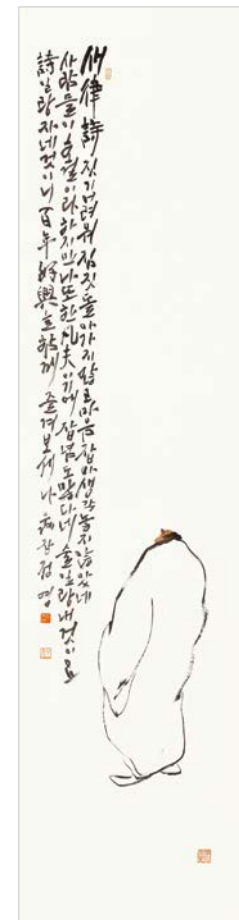 律詩 짓기 어려워 짐짓 돌아가지 않고 마음 잡아 생각 놓지 않았네
사람들이 호걸이라 하지만 나 또한 凡夫이기에 잡념도 많다네 술일랑 내 것이요
詩일랑 자네 것이니 百年 好興으로 함께 즐겨보세나